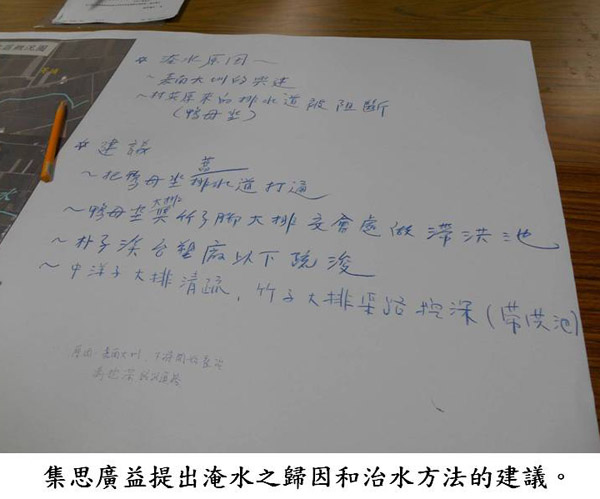 * 淹水原因~
~嘉南大圳的興建
~村莊原來的排水道被阻斷
(鴨母坔)
* 建議
舊
~把鴨母坔排水道打通
大排
~鴨母坔與竹子腳大排交會處做滯洪池
~朴子溪台塑廠以下疏浚
~中洋子大排清疏,竹子大排渠路挖深(滯洪池)
嘉南大圳
集思廣益提出淹水之歸因和治水方法的建議。